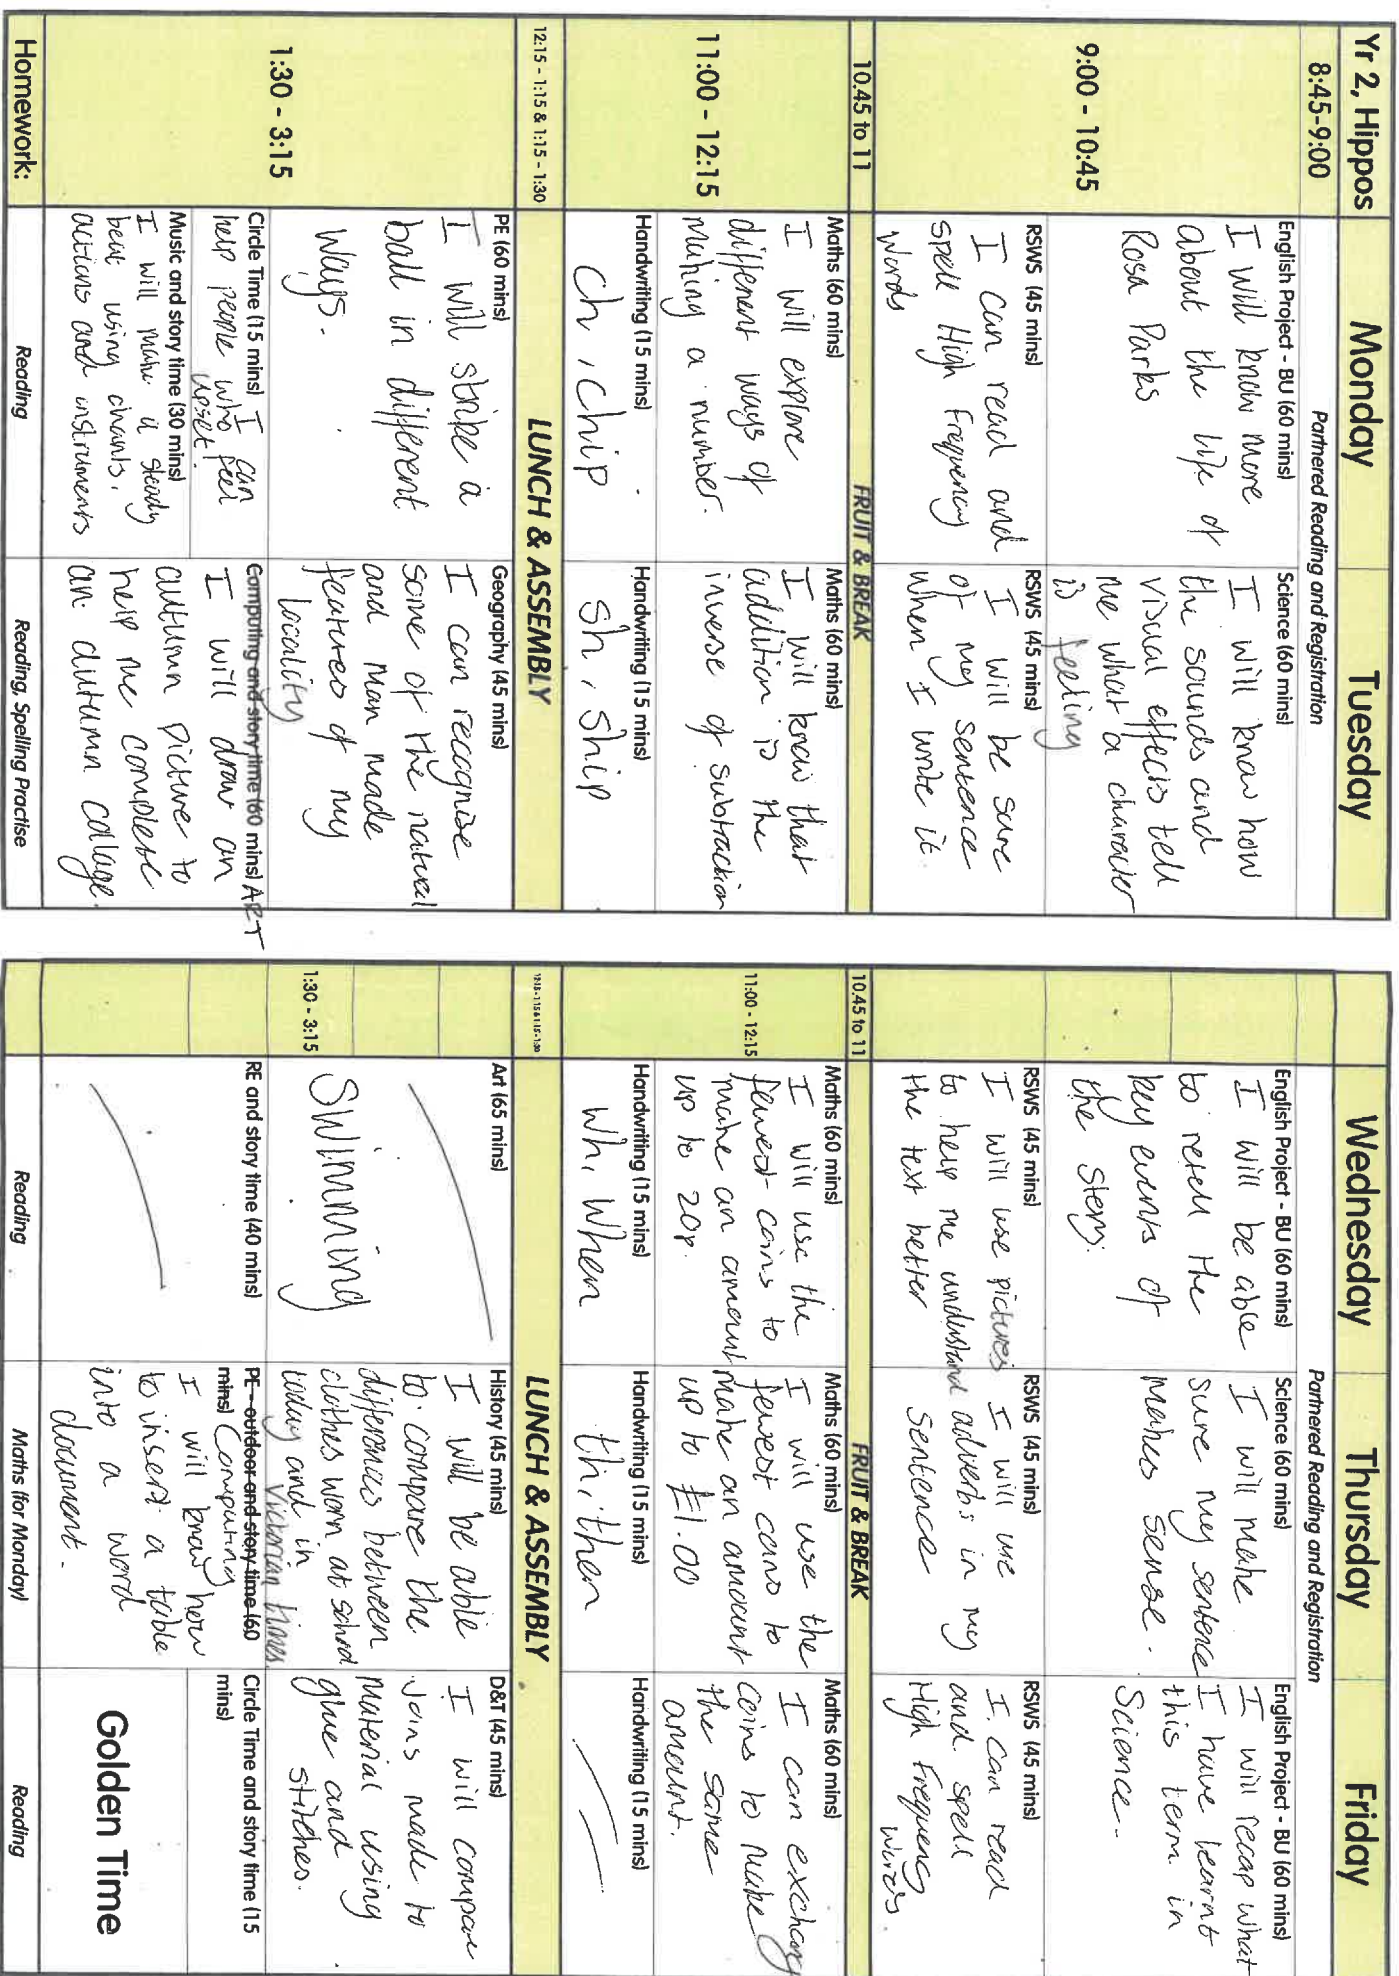 Yr 2, Hippos
Monday
Tuesday
8:45-9:00
Partnered Reading and Registration
9:00 - 10:45
English Project - BU (60 mins)
I will know more
about the life of
Rosa Parks
Science (60 mins)
I will know how
the sounds and
visual effects tell
me what a character
is feeling
RSWS (45 mins)
I can read and
spell High Frequency
words
RSWS (45 mins)
I will be sure
of my sentence
when I write it.
10.45 to 11
FRUIT & BREAK
11:00 - 12:15
Maths (60 mins)
I will explore
different ways of
making a number.
Maths (60 mins)
I will know that
addition is the
inverse of subtraction
Handwriting (15 mins)
ch, chip
Handwriting (15 mins)
sh, ship
12:15 - 1:15 & 1:15 - 1:30
LUNCH & ASSEMBLY
1:30 - 3:15
PE (60 mins)
I will strike a
ball in different
ways.
Geography (45 mins)
I can recognise
some of the natural
and man made
features of my
locality
Circle Time (15 mins) I can
help people who feel
upset.
Music and story time (30 mins)
I will make a steady
beat using chants,
actions and instruments
Computing and story time (60 mins) ART
I will draw an
autumn picture to
help me complete
an autumn collage.
Homework:
Reading
Reading, Spelling Practise
Wednesday
Thursday
Friday
Partnered Reading and Registration
English Project - BU (60 mins)
I will be able
to retell the
key events of
the story.
Science (60 mins)
I will make
sure my sentence
makes sense.
English Project - BU (60 mins)
I will recap what
I have learnt
this term in
Science.
RSWS (45 mins)
I will use pictures
to help me understand
the text better
RSWS (45 mins)
I will use
adverbs in my
sentence
RSWS (45 mins)
I can read
and spell
High Frequency
words.
10.45 to 11
FRUIT & BREAK
11:00 - 12:15
Maths (60 mins)
I will use the
fewest coins to
make an amount
up to 20p.
Maths (60 mins)
I will use the
fewest coins to
make an amount
up to £1.00
Maths (60 mins)
I can exchange
coins to make
the same
amount.
Handwriting (15 mins)
wh, when
Handwriting (15 mins)
th, then
Handwriting (15 mins)
12:15 - 1:15 & 1:15 - 1:30
LUNCH & ASSEMBLY
1:30 - 3:15
Art (65 mins)
Swimming
History (45 mins)
I will be able
to compare the
differences between
clothes worn at school
today and in
Victorian times
D&T (45 mins)
I will compare
joins made to
material using
glue and
stitches.
RE and story time (40 mins)
PE - outdoor and story time (60
mins) Computing
I will know how
to insert a table
into a word
document.
Circle Time and story time (15
mins)
Golden Time
Reading
Maths (for Monday)
Reading